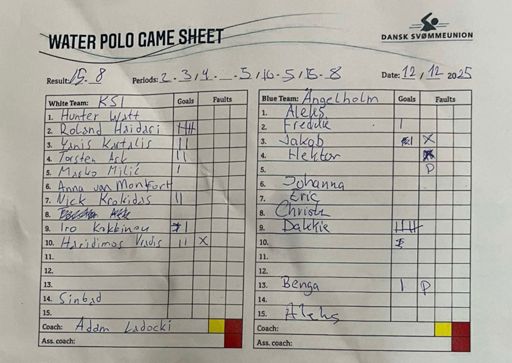 WATER POLO GAME SHEET
DANSK SVØMMEUNION
Result: 15.8 Periods: 2.3,4 . 5,10.5,15.8 Date: 12,12 2025
White Team: KSI Goals Faults
1. Hunter Watt
2. Roland Haidasi
3. Yanis Kastalis II
4. Torsten Ask II
5. Marko Milić I
6. Anna van Montfort
7. Nick Krokidas II
8.
9. Iro I
10. Haridimos II X
11.
12.
13.
14. Sinbad
15.
Coach: Adam Ladocki
Ass. coach:
Blue Team: Ängelholm Goals Faults
1. Aleks
2. Fredrik I
3. Jakob I X
4. Hektor
5. P
6. Johanna
7. Eric
8. Christa
9. Dakkie
10.
11.
12.
13. Benga I P
14.
15. Aleks
Coach:
Ass. coach: